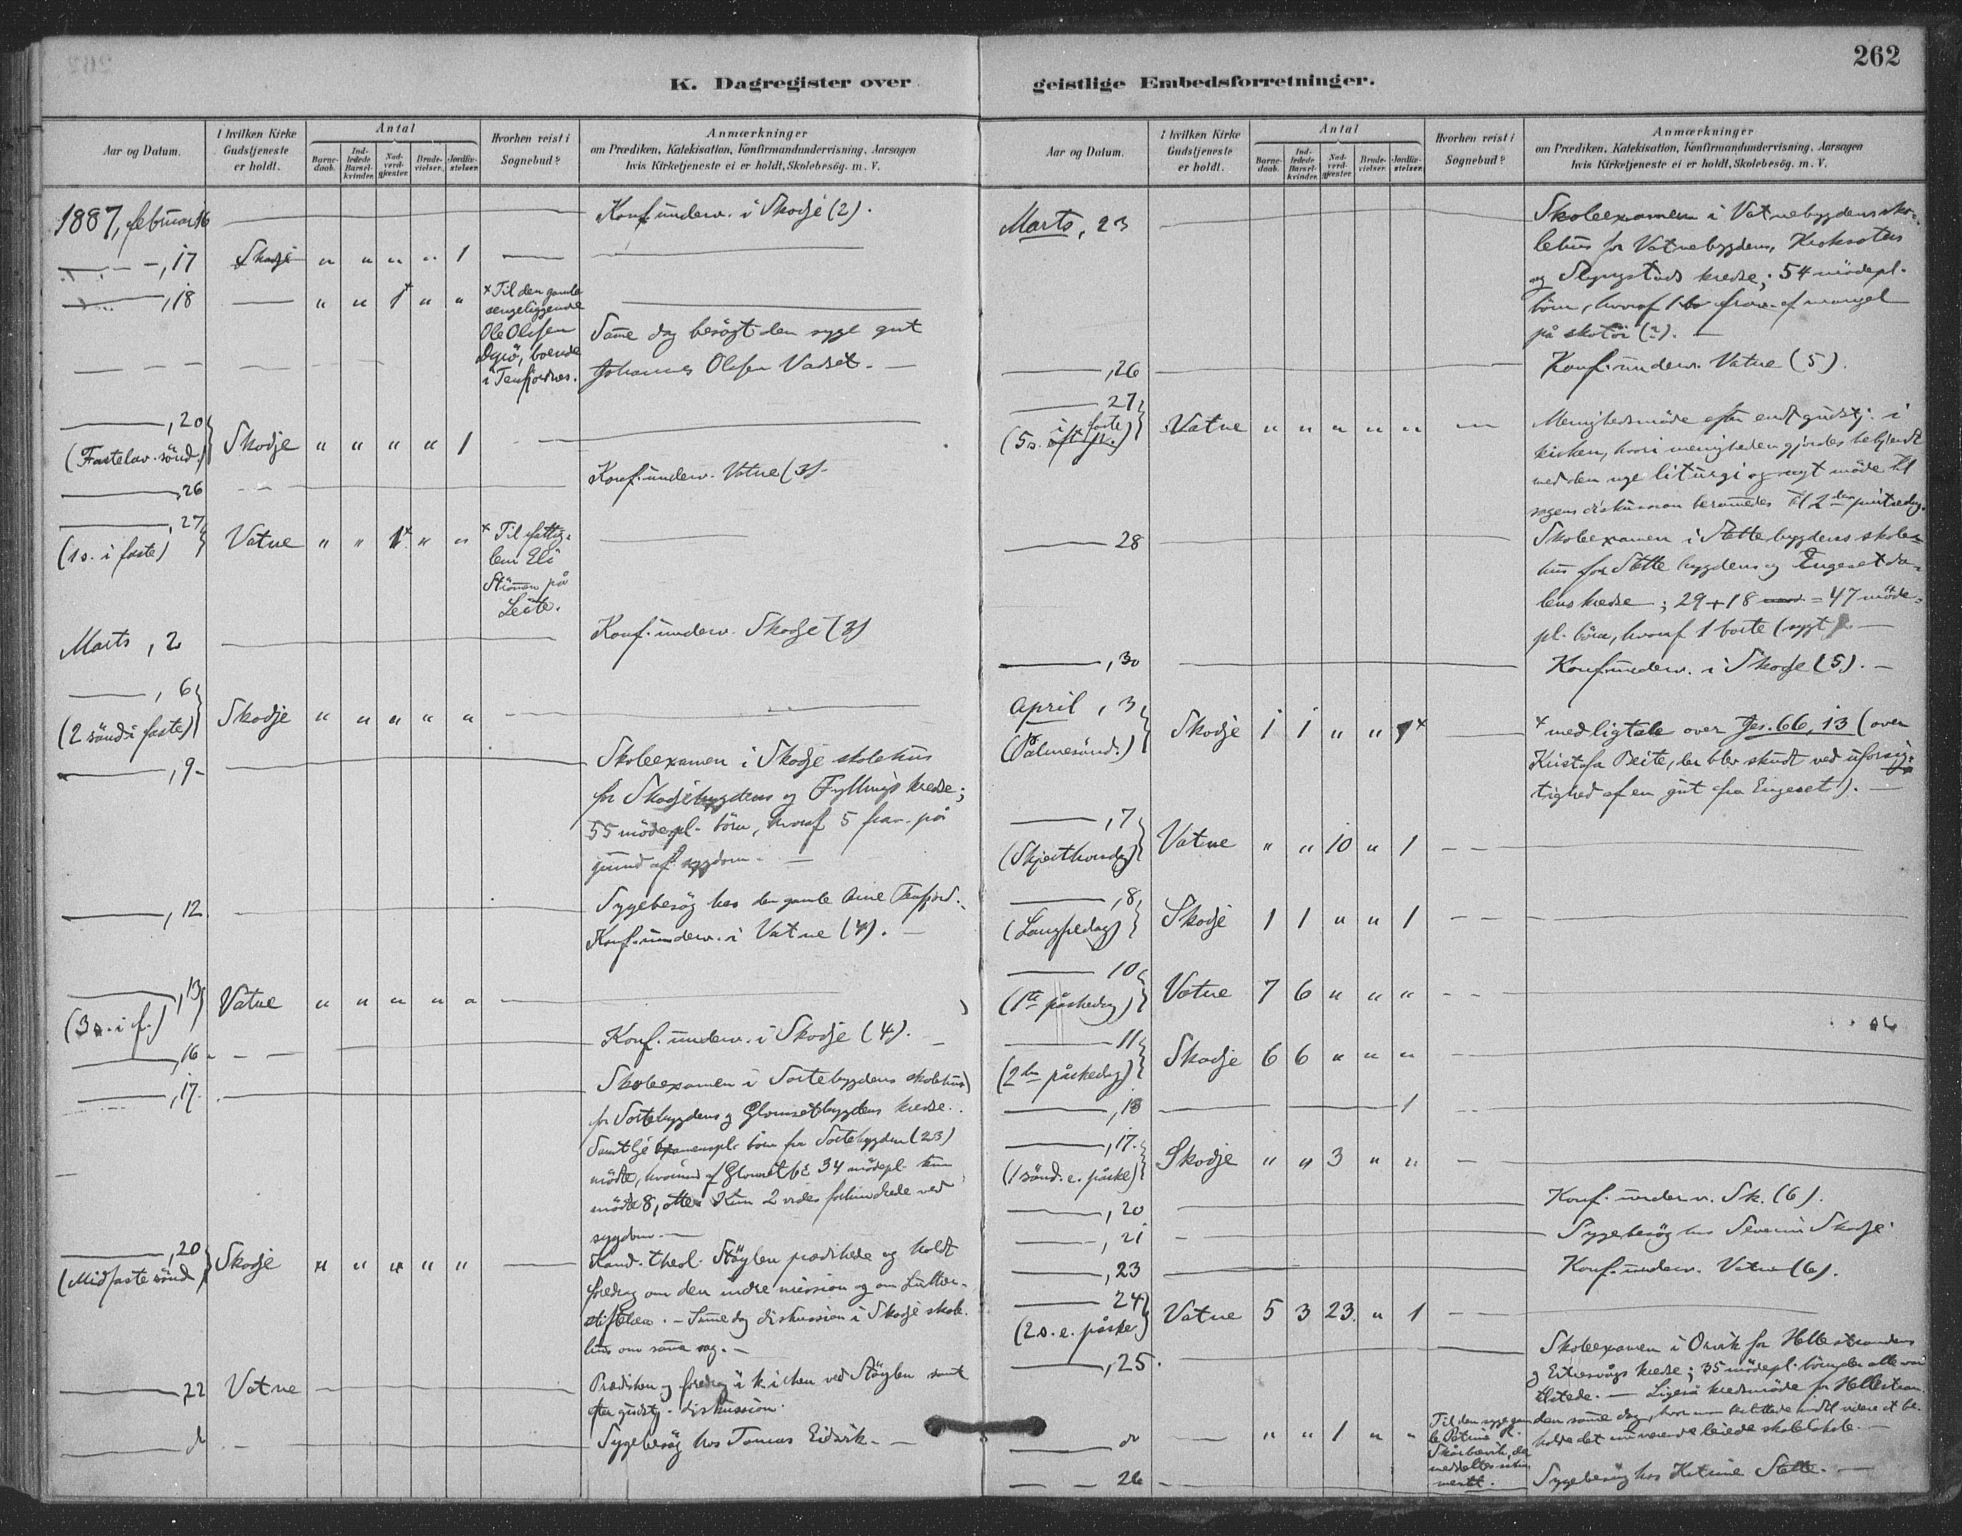 262
K. Dagregister over
Aar og Datum.
I hvilken Kirke Gudstjeneste er holdt.
Antal
Barne-daab.
Ind-ledede Barsel-kvinder.
Nad-verd-gjæster.
Brude-vielser.
Jordfæ-stelser.
Hvorhen reist i Sognebud?
Anmærkninger
om Prædiken, Katekisation, Konfirmandundervisning, Aarsagen
hvis Kirketjeneste ei er holdt, Skolebesøg. m. V.
1887, februar 16 Konf. underv. i Skodje (2).
—, 17 Skodje " " " " 1
—, 18 — " " 1+ " "
+ Til den gamle
sengeliggende
Ole Olsen
Dyrö, boende
i Tenfjordnes.
Same dag besögt den syge gut
Johannes Olsen Vadset. —
—, 20
(Fastelav. sönd.) Skodje " " " " 1
—, 26 Konf. underv. Vatne (3).
—, 27
(1 s. i faste) Vatne " " 1+ " "
+ Til fattig-
lem Eli
på
Leite.
Marts, 2 Konf. underv. Skodje (3)
—, 6
(2 sönd i faste) Skodje " " " " "
—, 9 Skoleexamen i Skodje skolehus
for Skodjebygdens og Fyllings kredse;
55 mödepl. börn, hvoraf 5 frav. på
grund af sygdom. —
—, 12 Sygebesög hos den gamle Tenfjord.
Konf. underv. i Vatne (4). —
—, 13
(3 s. i f.) Vatne " " " " "
—, 16 Konf. underv. i Skodje (4). —
—, 17 Skoleexamen i Sortebygdens skolehus
for Sortebygdens og Glomsetbygdens kredse.
börn fra Sortebygden (23)
mödte, 34 mödepl. kun
mödte 8, otte. Kun 2 forhindrede ved
sygdom. —
—, 20
(Midfaste sönd) Skodje " " " " "
Kand. theol. Stöylen prædikede og holdt
foredrag om den indre mission og om Luther-
stiftelsen. — Same dag diskussion i Skodje skole-
hus om same sag. —
—, 22 Vatne Prædiken og foredrag i kirken ved Stöylen samt
efter gudstj. diskussion.
— Sygebesög hos Tomas Eidsvik. —
geistlige Embedsforretninger.
Aar og Datum.
I hvilken Kirke Gudstjeneste er holdt.
Antal
Barne-daab.
Ind-ledede Barsel-kvinder.
Nad-verd-gjæster.
Brude-vielser.
Jordfæ-stelser.
Hvorhen reist i Sognebud?
Anmærkninger
om Prædiken, Katekisation, Konfirmandundervisning, Aarsagen
hvis Kirketjeneste ei er holdt, Skolebesøg. m. V.
Marts, 23 Skoleexamen i Vatnebygdens sko-
lehus for Vatnebygdens,
og Slyngstads kredse; 54 mödepl.
börn, hvoraf frav. af mangel
på skotöi (2). —
—, 26 Konf. underv. Vatne (5).
— 27
(5 s. i faste) Vatne " " " " "
Menighedsmöde efter endt gudstj. i
kirken, hvori menigheden gjordes bekjendt
med den nye liturgi og nyt möde til
sagens diskussion berammedes til 2den pintsedag.
— 28 Skoleexamen i Stettebygdens skole-
hus for Stettebygdens og Engesetda-
lens kredse; 29 + 18 = 47 möde-
pl. börn, hvoraf 1 borte (sygt). —
—, 30 Konf. underv. i Skodje (5). —
April, 3
(Palmesönd.) Skodje 1 1 " " 1+
+ med ligtale over Jes. 66, 13 (over
Kristofa Beite, der blev skudt ved uforsig-
tighed af en gut fra Engeset!). —
—, 7
(Skjærthorsdag) Vatne " " 10 " 1
—, 8
(Langfredag) Skodje 1 1 " " 1
— 10
(1ste påskedag) Vatne 7 6 " " "
— 11
(2den påskedag) Skodje 6 6 " " "
—, 13 — 1
—, 17
(1 sönd. e. påske) Skodje " " 3 " "
—, 20 Konf. underv. Sk. (6).
—, 21 Sygebesög hos Severin Skodje
—, 23 Konf. underv. Vatne (6).
— 24
(2 s. e. påske) Vatne 5 3 23 " 1
—, 25 Skoleexamen i Orvik for Hellestrandens
og kredse; 35 mödepl. börn, der alle var
tilstede. — Ligeså kredsmöde for Hellestran-
den same dag,
— " " 1 " "
Til den syge
26 Sygebesög hos Katrine Stette. —